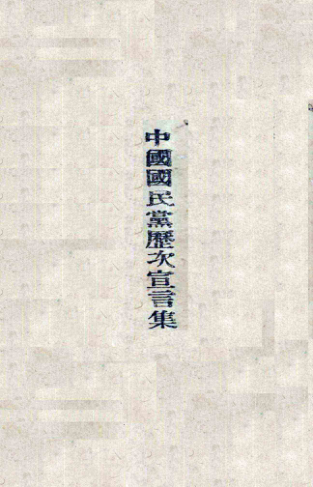 中國國民黨歷次宣言集